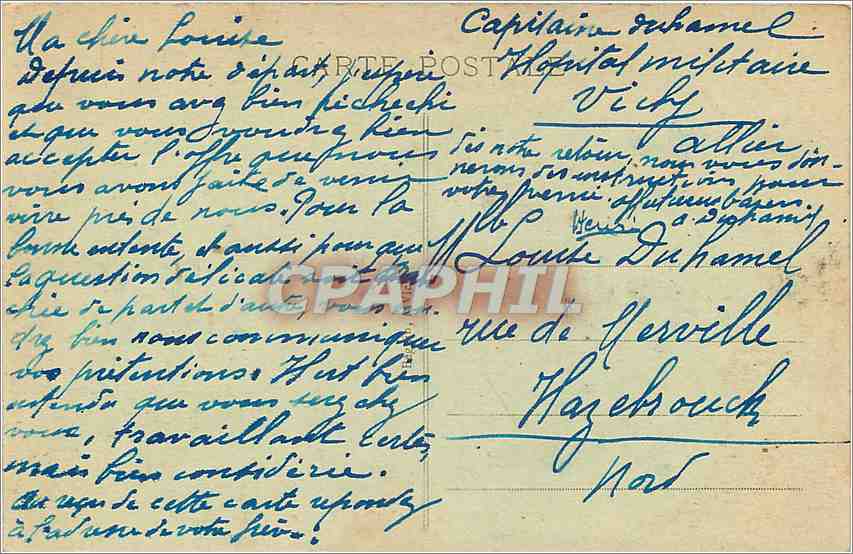 Ma chère Louise
Depuis notre départ, j'espère
que vous avez bien
et que vous voudrez bien
accepter l'offre que nous
vous avons faite de venir
vivre près de nous. Pour la
bonne entente, et aussi pour que
la question délicate soit
de part et d'autre, vous
drez bien nous communiquer
vos prétentions. Il est bien
entendu que vous serez chez
vous, travaillant certes,
mais bien considérée.
Au reçu de cette carte répondez
à l'adresse de votre frère.
CARTE POSTALE
Capitaine Duhamel
Hôpital militaire
Vichy
Allier
dès notre retour, nous vous don-
nerons des instructions pour
votre venue. affectueux baisers
Duhamel
Mlle
Louise Duhamel
rue de Merville
Hazebrouck
Nord
CPAPHIL